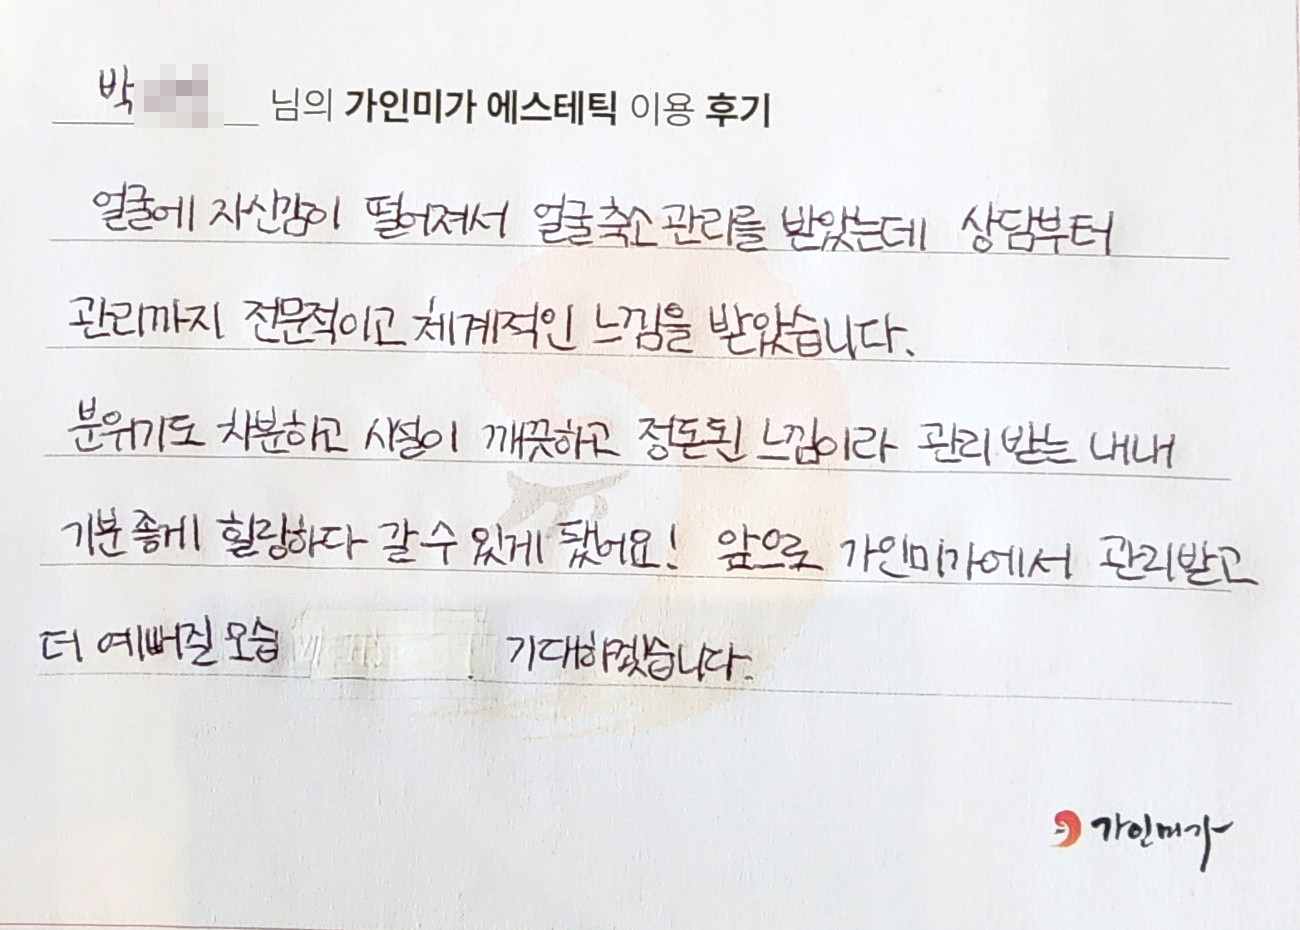 박 님의 가인미가 에스테틱 이용 후기
얼굴에 자신감이 떨어져서 얼굴축소관리를 받았는데 상담부터
관리까지 전문적이고 체계적인 느낌을 받았습니다.
분위기도 차분하고 시설이 깨끗하고 정돈된 느낌이라 관리 받는 내내
기분 좋게 힐링하다 갈 수 있게 됐어요! 앞으로 가인미가에서 관리받고
더 예뻐질 모습 기대하겠습니다.
가인미가